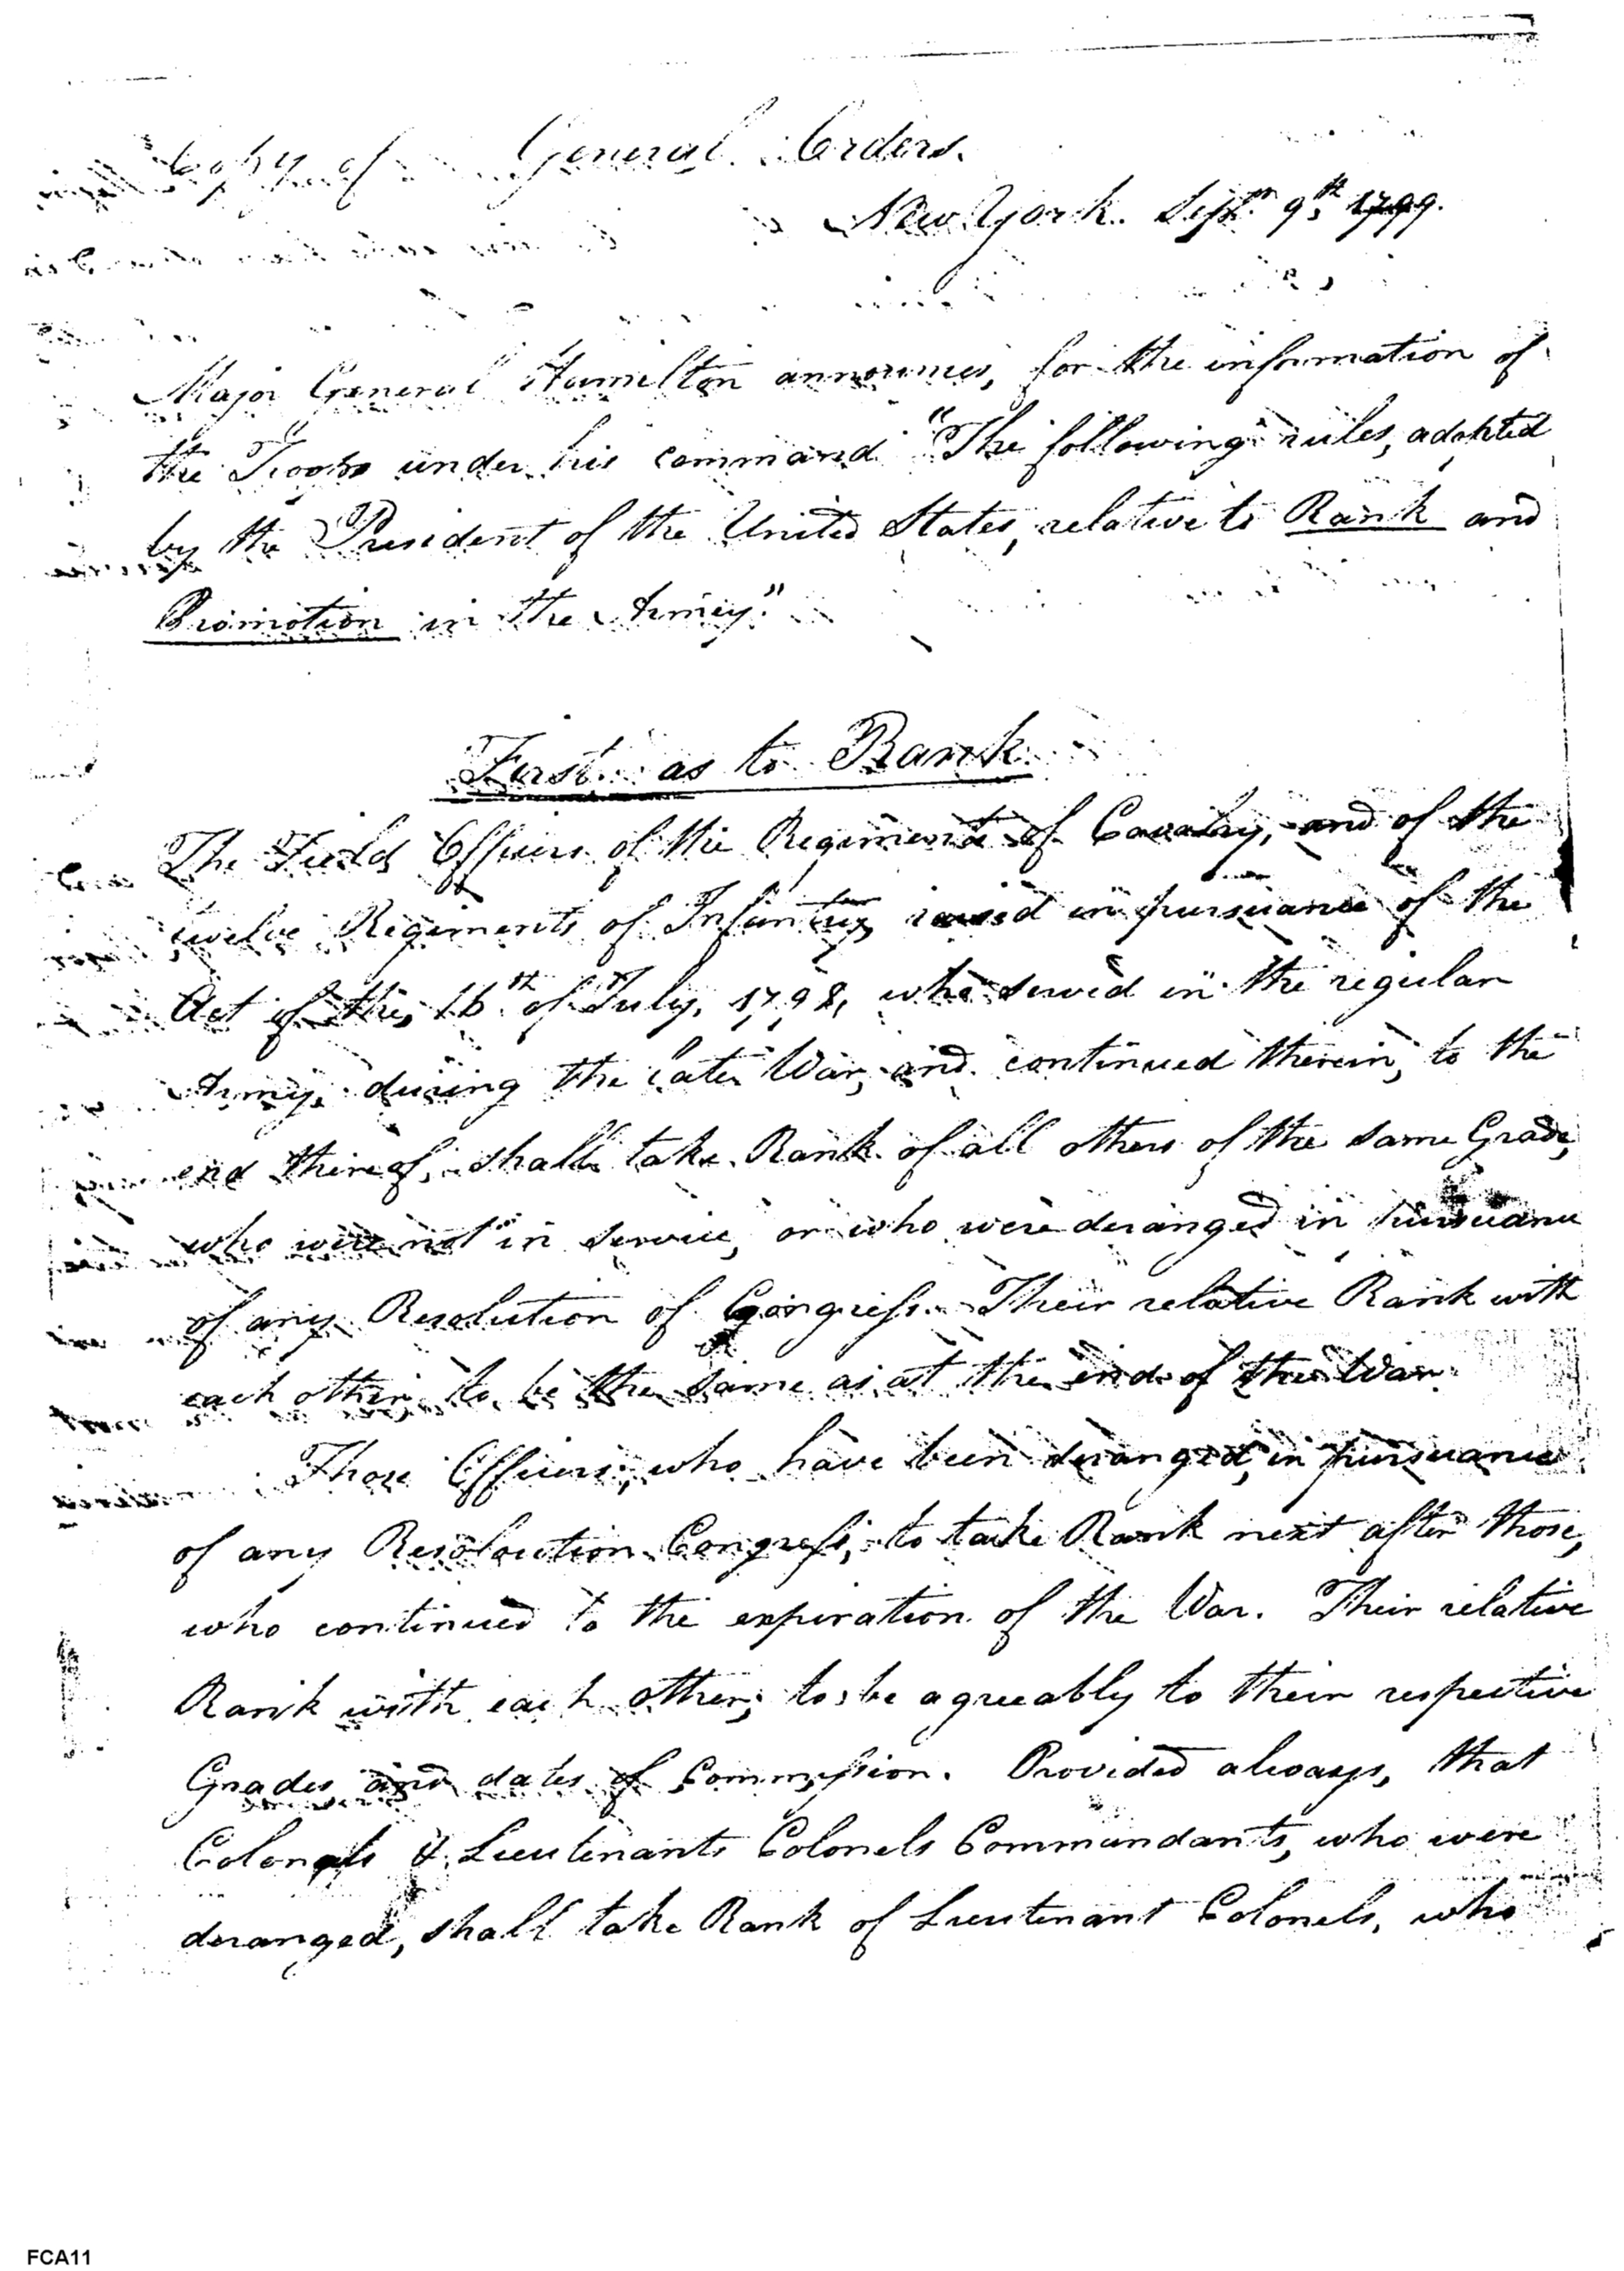 Copy of General Orders.
New York. Sept.r 9.th 1799.
Major General Hamilton announces, for the information of
the Troops under his command "The following rules, adopted
by the President of the United States, relative to Rank and
Promotion in the Army."
First as to Rank
The Field Officers of the Regiments of Cavalry, and of the
twelve Regiments of Infantry raised in pursuance of the
Act of the 16th of July, 1798, who served in the regular
Army, during the late War, and continued therein, to the
end thereof, shall take Rank of all others of the same Grade,
who were not in service, or who were deranged in pursuance
of any Resolution of Congress. Their relative Rank with
each other, to be the same as at the end of the War.
Those Officers, who have been deranged, in pursuance
of any Resolution Congress, to take Rank next after those,
who continued to the expiration of the War. Their relative
Rank with each other, to be agreeably to their respective
Grades and dates of Commission. Provided always, that
Colonels & Lieutenants Colonels Commandants, who were
deranged, shall take Rank of Lieutenant Colonels, who
FCA11